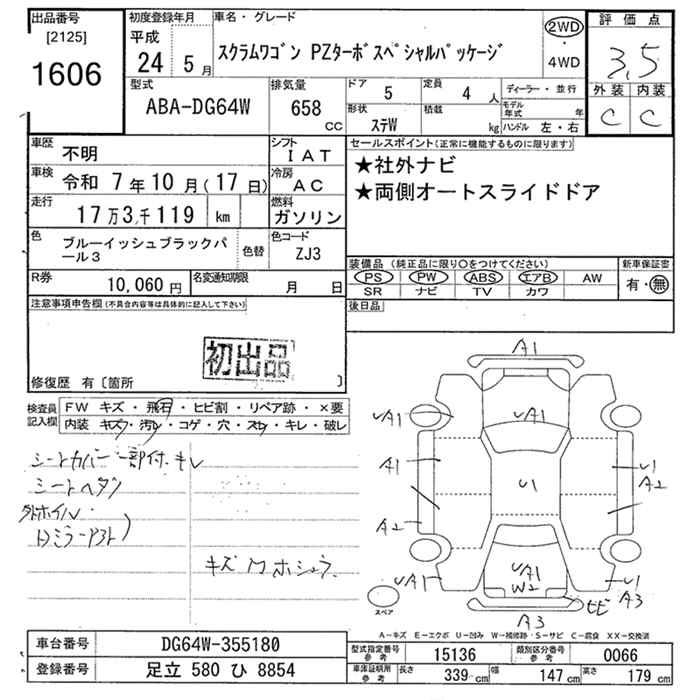 出品番号
[2125]
1606
初度登録年月
平成
24 5月
車名・グレード
スクラムワゴン PZターボスペシャルパッケージ
2WD
・
4WD
評価点
3.5
外装 内装
C C
型式
ABA-DG64W
排気量
658
CC
ドア
5
定員
4 人
形状
ステW
積載
kg
ディーラー・並行
モデル年式 年
ハンドル 左・右
車歴
不明
シフト
IAT
車検
令和 7年10月(17日)
冷房
AC
走行
17万3千119 km
燃料
ガソリン
色
ブルーイッシュブラックパール3
色替
色コード
ZJ3
R券
10,060円
名変通知期限
月 日
セールスポイント(正常に機能するものに限ります)
★社外ナビ
★両側オートスライドドア
装備品(純正品に限り○をつけてください)
PS PW ABS エアB AW
SR ナビ TV カワ
新車保証書
有・無
後日品
注意事項申告欄(不具合内容等は具体的に記入して下さい)
初出品
修復歴 有〔箇所 〕
検査員記入欄
FW キズ・飛石・ヒビ割・リペア跡・×要
内装 キズ・汚レ・コゲ・穴・スレ・キレ・破レ
シートカバー一部付.キレ
シートヘタリ
外ホイル.
キズ
A1
UA1
UA1
A1
U1
U1
A2
A2
UA1
UA1
W2
U1
A3
ヒビ
A3
スペア
A-キズ E-エクボ U-凹み W-補修跡・S-サビ C-腐食 XX-交換済
車台番号
DG64W-355180
登録番号
足立 580 ひ 8854
型式指定番号
参考
15136
類別区分番号
参考
0066
車庫証明用
参考
長さ 339cm 幅 147cm 高さ 179cm